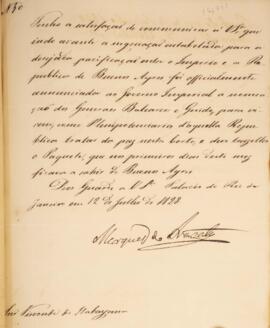 N 30
Tenho a satisfação de communicar a VSª, que
indo avante a negociação entabolada para a
desejada pacificação entre o Imperio e a Re
publica de Buenos Ayres foi officialmente
annunciado ao Governo Imperial a nomea
ção dos Generaes Balcarce e Guido, para vi
rem, como Plenipotenciarios d'aquella Repu
blica tratar da paz nesta Corte, e
o Paquete, que nos primeiros dias deste mez
ficava a sahir de Buenos Ayres
Deos Guarde a VSª Palacio do Rio de
Janeiro em 12 de Julho de 1828
Marquez do Aracaty
Snr Visconde de Itabayana